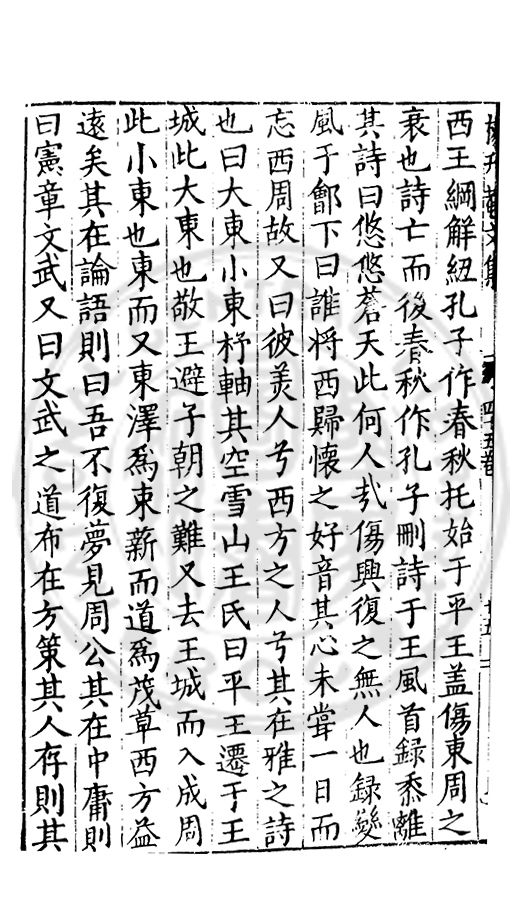 楊升菴文集 四十五卷
西王綱解紐孔子作春秋托始于平王盖傷東周之
衰也詩亡而後春秋作孔子刪詩于王風首録黍離
其詩曰悠悠蒼天此何人㢤傷興復之無人也録變
風于鄶下曰誰将西歸懷之好音其心未嘗一日而
忘西周故又曰彼美人兮西方之人兮其在雅之詩
也曰大東小東杼軸其空雪山王氏曰平王遷于王
城此大東也敬王避子朝之難又去王城而入成周
此小東也東而又東澤爲束薪而道爲茂草西方益
遠矣其在論語則曰吾不復夢見周公其在中庸則
曰憲章文武又曰文武之道布在方策其人存則其